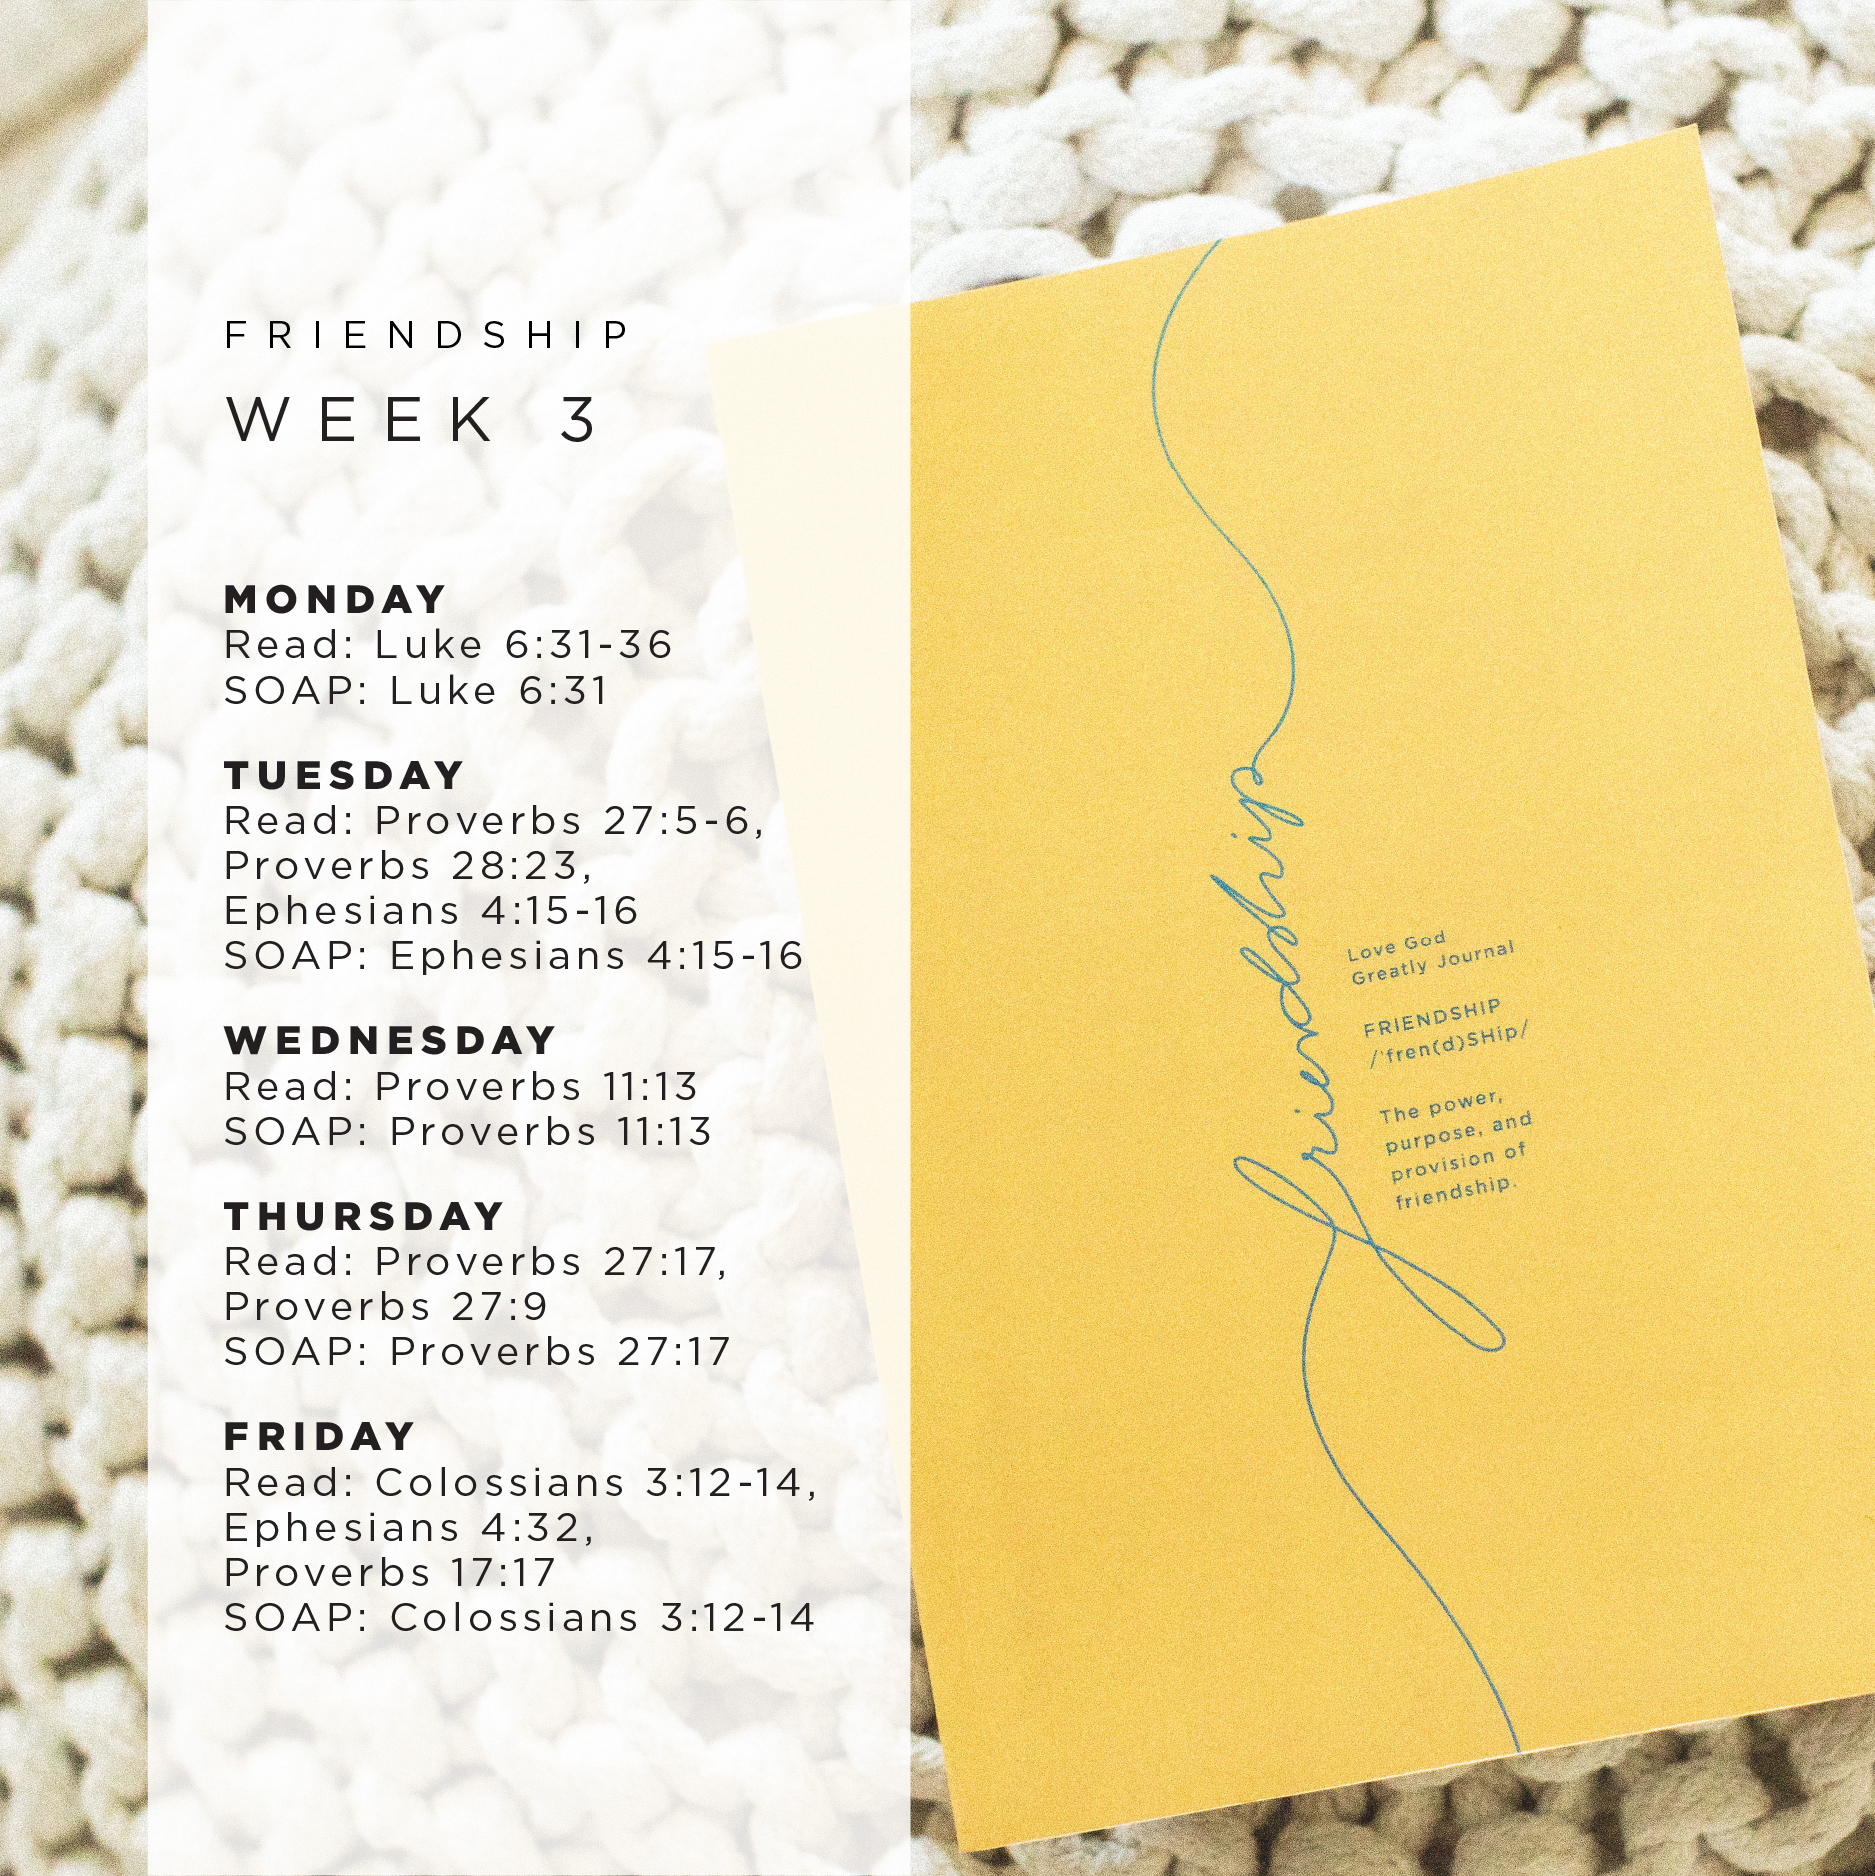 FRIENDSHIP
WEEK 3
MONDAY
Read: Luke 6:31-36
SOAP: Luke 6:31
TUESDAY
Read: Proverbs 27:5-6,
Proverbs 28:23,
Ephesians 4:15-16
SOAP: Ephesians 4:15-16
WEDNESDAY
Read: Proverbs 11:13
SOAP: Proverbs 11:13
THURSDAY
Read: Proverbs 27:17,
Proverbs 27:9
SOAP: Proverbs 27:17
FRIDAY
Read: Colossians 3:12-14,
Ephesians 4:32,
Proverbs 17:17
SOAP: Colossians 3:12-14
friendship
Love God
Greatly Journal
FRIENDSHIP
/ˈfren(d)SHip/
The power,
purpose, and
provision of
friendship.